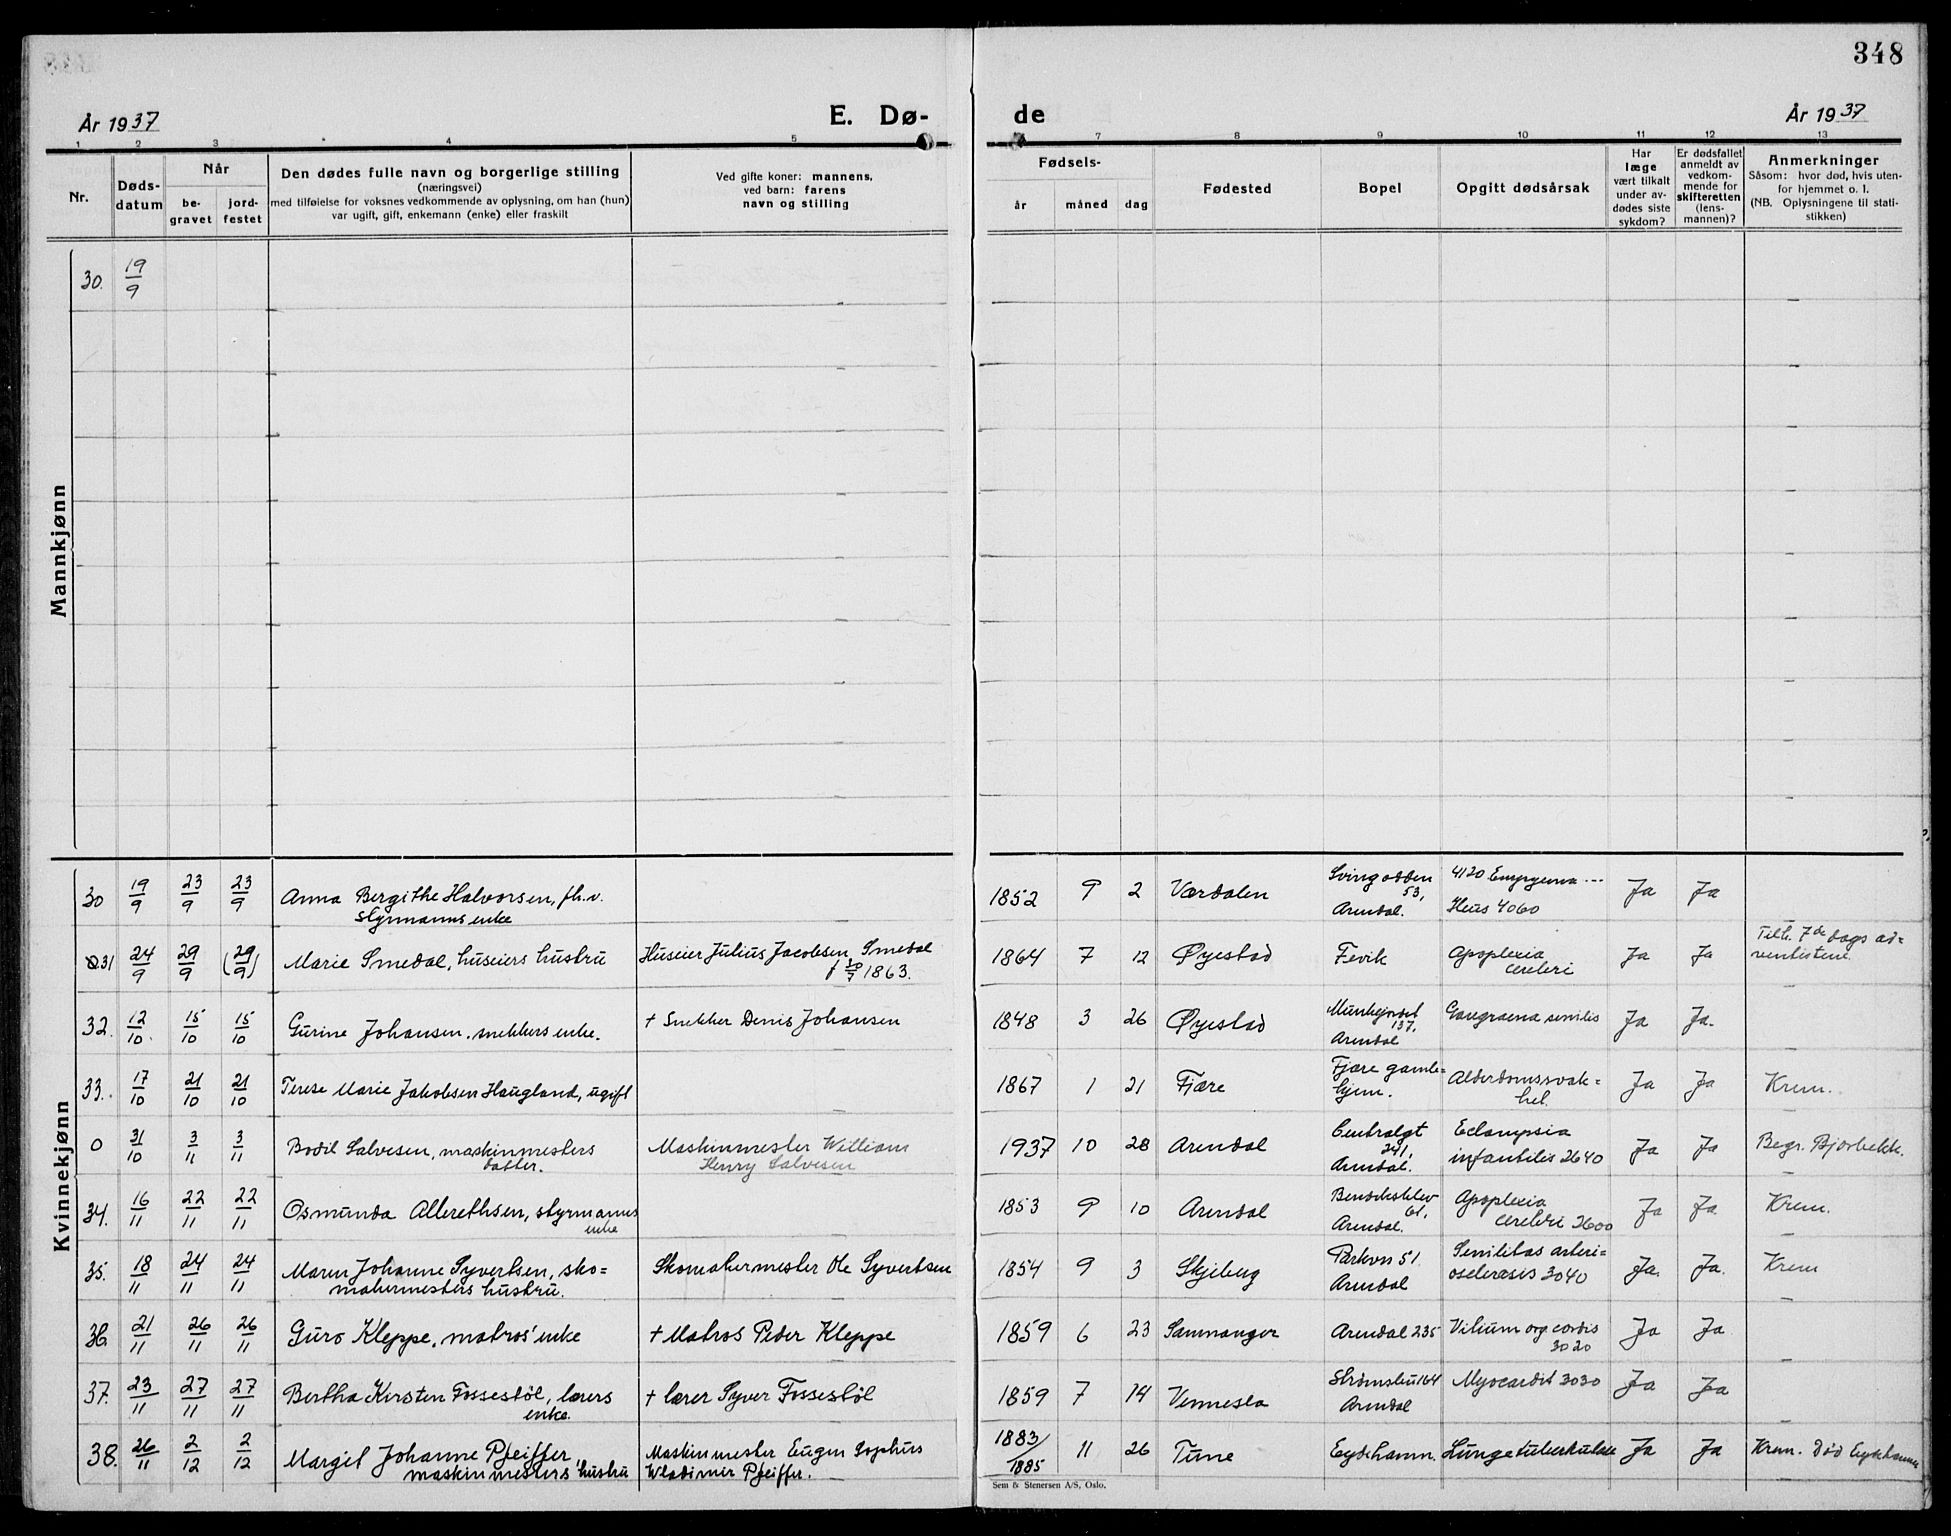 348
År 1937
E. Dø-
de
År 1937
1 2 3 4 5 7 8 9 10 11 12 13
Nr.
Døds-
datum
Når
be-
gravet
jord-
festet
Den dødes fulle navn og borgerlige stilling
(næringsvei)
med tilføielse for voksnes vedkommende av oplysning, om han (hun)
var ugift, gift, enkemann (enke) eller fraskilt
Ved gifte koner: mannens,
ved barn: farens
navn og stilling
Fødsels-
år måned dag
Fødested
Bopel
Opgitt dødsårsak
Har
læge
vært tilkalt
under av-
dødes siste
sykdom?
Er dødsfallet
anmeldt av
vedkom-
mende for
skifteretten
(lens-
mannen)?
Anmerkninger
Såsom: hvor død, hvis uten-
for hjemmet o. l.
(NB. Oplysningene til stati-
stikken)
Mannkjønn
30. 19/9
Kvinnekjønn
30 19/9 23/9 23/9 Anna Bergithe Halvorsen, fh.v.
styrmanns enke
1852 9 2 Værdalen
Svingodden
53,
Arendal.
4120 Empyema ---
Ileus 4060
Ja Ja
31 24/9 29/9 (29/9) Marie Smedal, huseiers hustru
Huseier Julius Jacobsen Smedal
1863.
1864 7 12 Øyestad Fevik
Apoplexia
cerebri
Ja Ja
Tilh. 7de dags ad=
ventistene.
32. 12/10. 15/10 15/10 Gurine Johansen. snekkers enke.
+ Snekker Denis Johansen
1848 3 26 Øyestad
137,
Arendal
Gangraena senilis
Ja Ja.
33. 17/10 21/10 21/10 Terese Marie Jakobsen Haugland, ugift
1867 1 21 Fjære
Fjære gamle=
hjem.
Alderdomssvak=
het.
Ja Ja Krem.
0 31/10 3/11 3/11 Bodil Salvesen, maskinmesters
datter.
Maskinmester William
Henry Salvesen
1937 10 28 Arendal
Centralgt
241,
Arendal.
Eclampsia
infantilis 2640
Ja Ja Begr. Bjorbekk.
34. 16/11 22/11 22/11 Osmunda Allerethsen, styrmanns
enke
1853 9 10 Arendal
Benediksklev
61,
Arendal.
Apoplexia
cerebri 2600
Ja Ja. Krem.
35. 18/11 24/11 24/11 Maren Johanne Syvertsen, sko=
makermesters hustru.
Skomakermester Ole Syvertsen
1854 9 3 Skjeberg
Parkvn 51.
Arendal
Senilitas arteri=
osclerosis 3040
Ja. Ja. Krem
36. 21/11 26/11 26/11 Guro Kleppe, matros' enke
+ Matros Peder Kleppe
1859 6 23 Samnanger Arendal 235
Vitium org cordis
3020
Ja Ja
37. 23/11 27/11 27/11 Bertha Kirsten Fossestøl, lærers
enke.
+ lærer Syver Fossestøl
1859 7 14 Vennesla
Strømsbu 164
Arendal
Myocardit 3030
Ja Ja
38. 26/11 2/12 2/12 Margit Johanne Pfeiffer
maskinmesters hustru
Maskinmester Eugen Sophus
Wladimir Pfeiffer.
1883/1885 11 26 Tune Eydehamn. Lungetuberkulose Ja Ja Krem. Død Eydehamn
Sem & Stenersen A/S, Oslo.